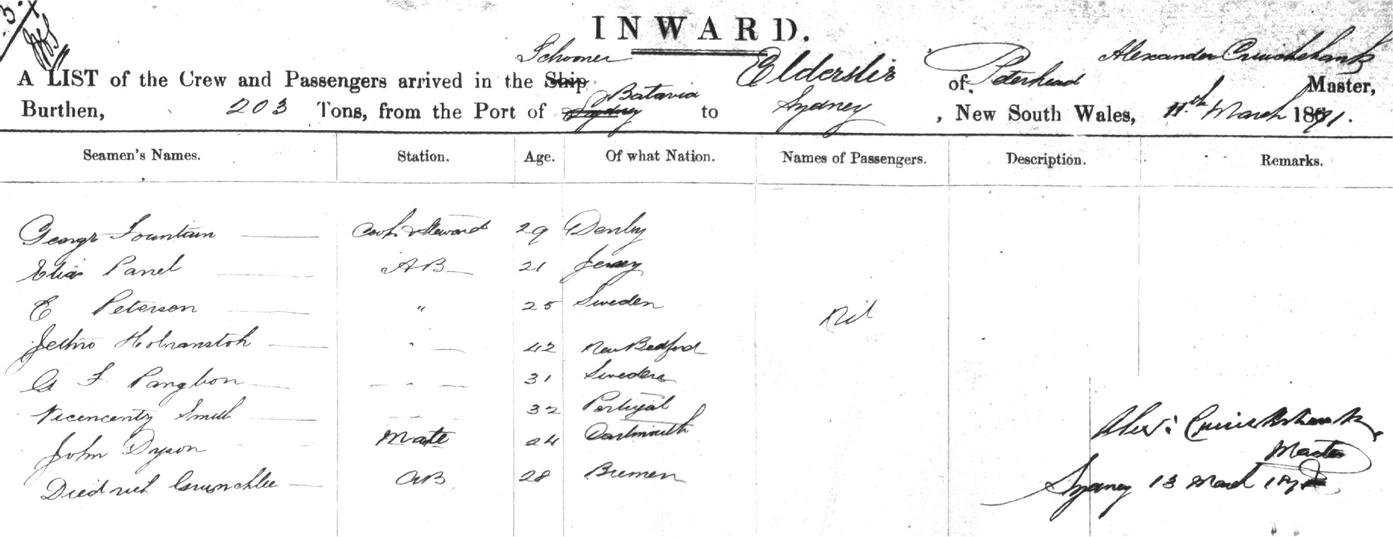 INWARD.
Schooner
A LIST of the Crew and Passengers arrived in the Ship Elderslie of Peterhead Alexander Cruickshank Master,
Burthen, 203 Tons, from the Port of Sydney Batavia to Sydney, New South Wales, 11th March 1871.
Seamen's Names. Station. Age. Of what Nation. Names of Passengers. Description. Remarks.
George Fountain Cook & Steward 29 Denby
Elias Panel AB 21 Jersey
E Peterson " 25 Sweden Nil
Jethro 42 New Bedford
G F Pangbon 31 Sweden
Vicencenty Smith 32 Portugal
John Dyson Mate 24 Dartmouth
Diedrich AB 28 Bremen
Alex: Cruickshank
Master
Sydney 13 March